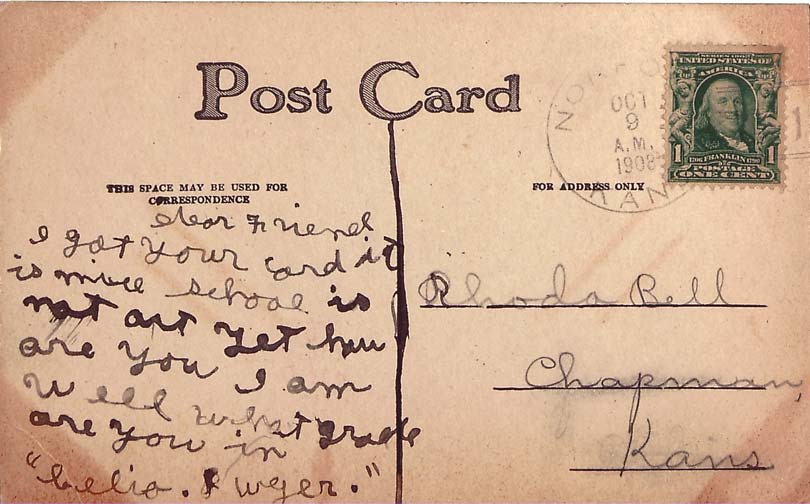 Post Card
THIS SPACE MAY BE USED FOR
CORRESPONDENCE
dear Friend
I got your card it
is nice school is
not out yet how
are you I am
well what grade
are you in
FOR ADDRESS ONLY
OCT
9
A.M.
1908
KAN
SERIES 1902
UNITED STATES OF
AMERICA
1706 FRANKLIN 1790
1 POSTAGE 1
ONE CENT
Rhoda Bell
Chapman,
Kans